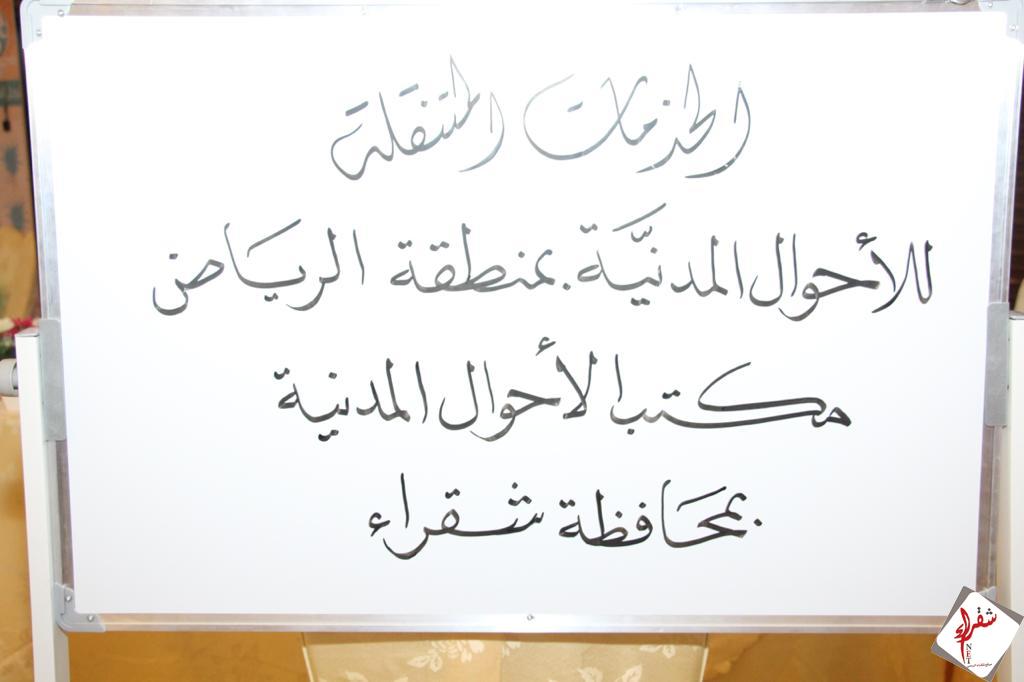 الخدمات المتنقلة
للأحوال المدنيَّة بمنطقة الريَاض
مكتب الأحوال المدنية
بمحَافظة شقراء
شقراء
NET